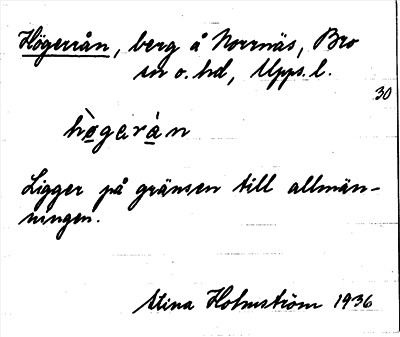 Högerrån, berg å Norrnäs, Bro
sn o. hd, Upps. l.
30
hò̱garà̱n
Ligger på gränsen till allmän-
ningen.
Stina Holmström 1936